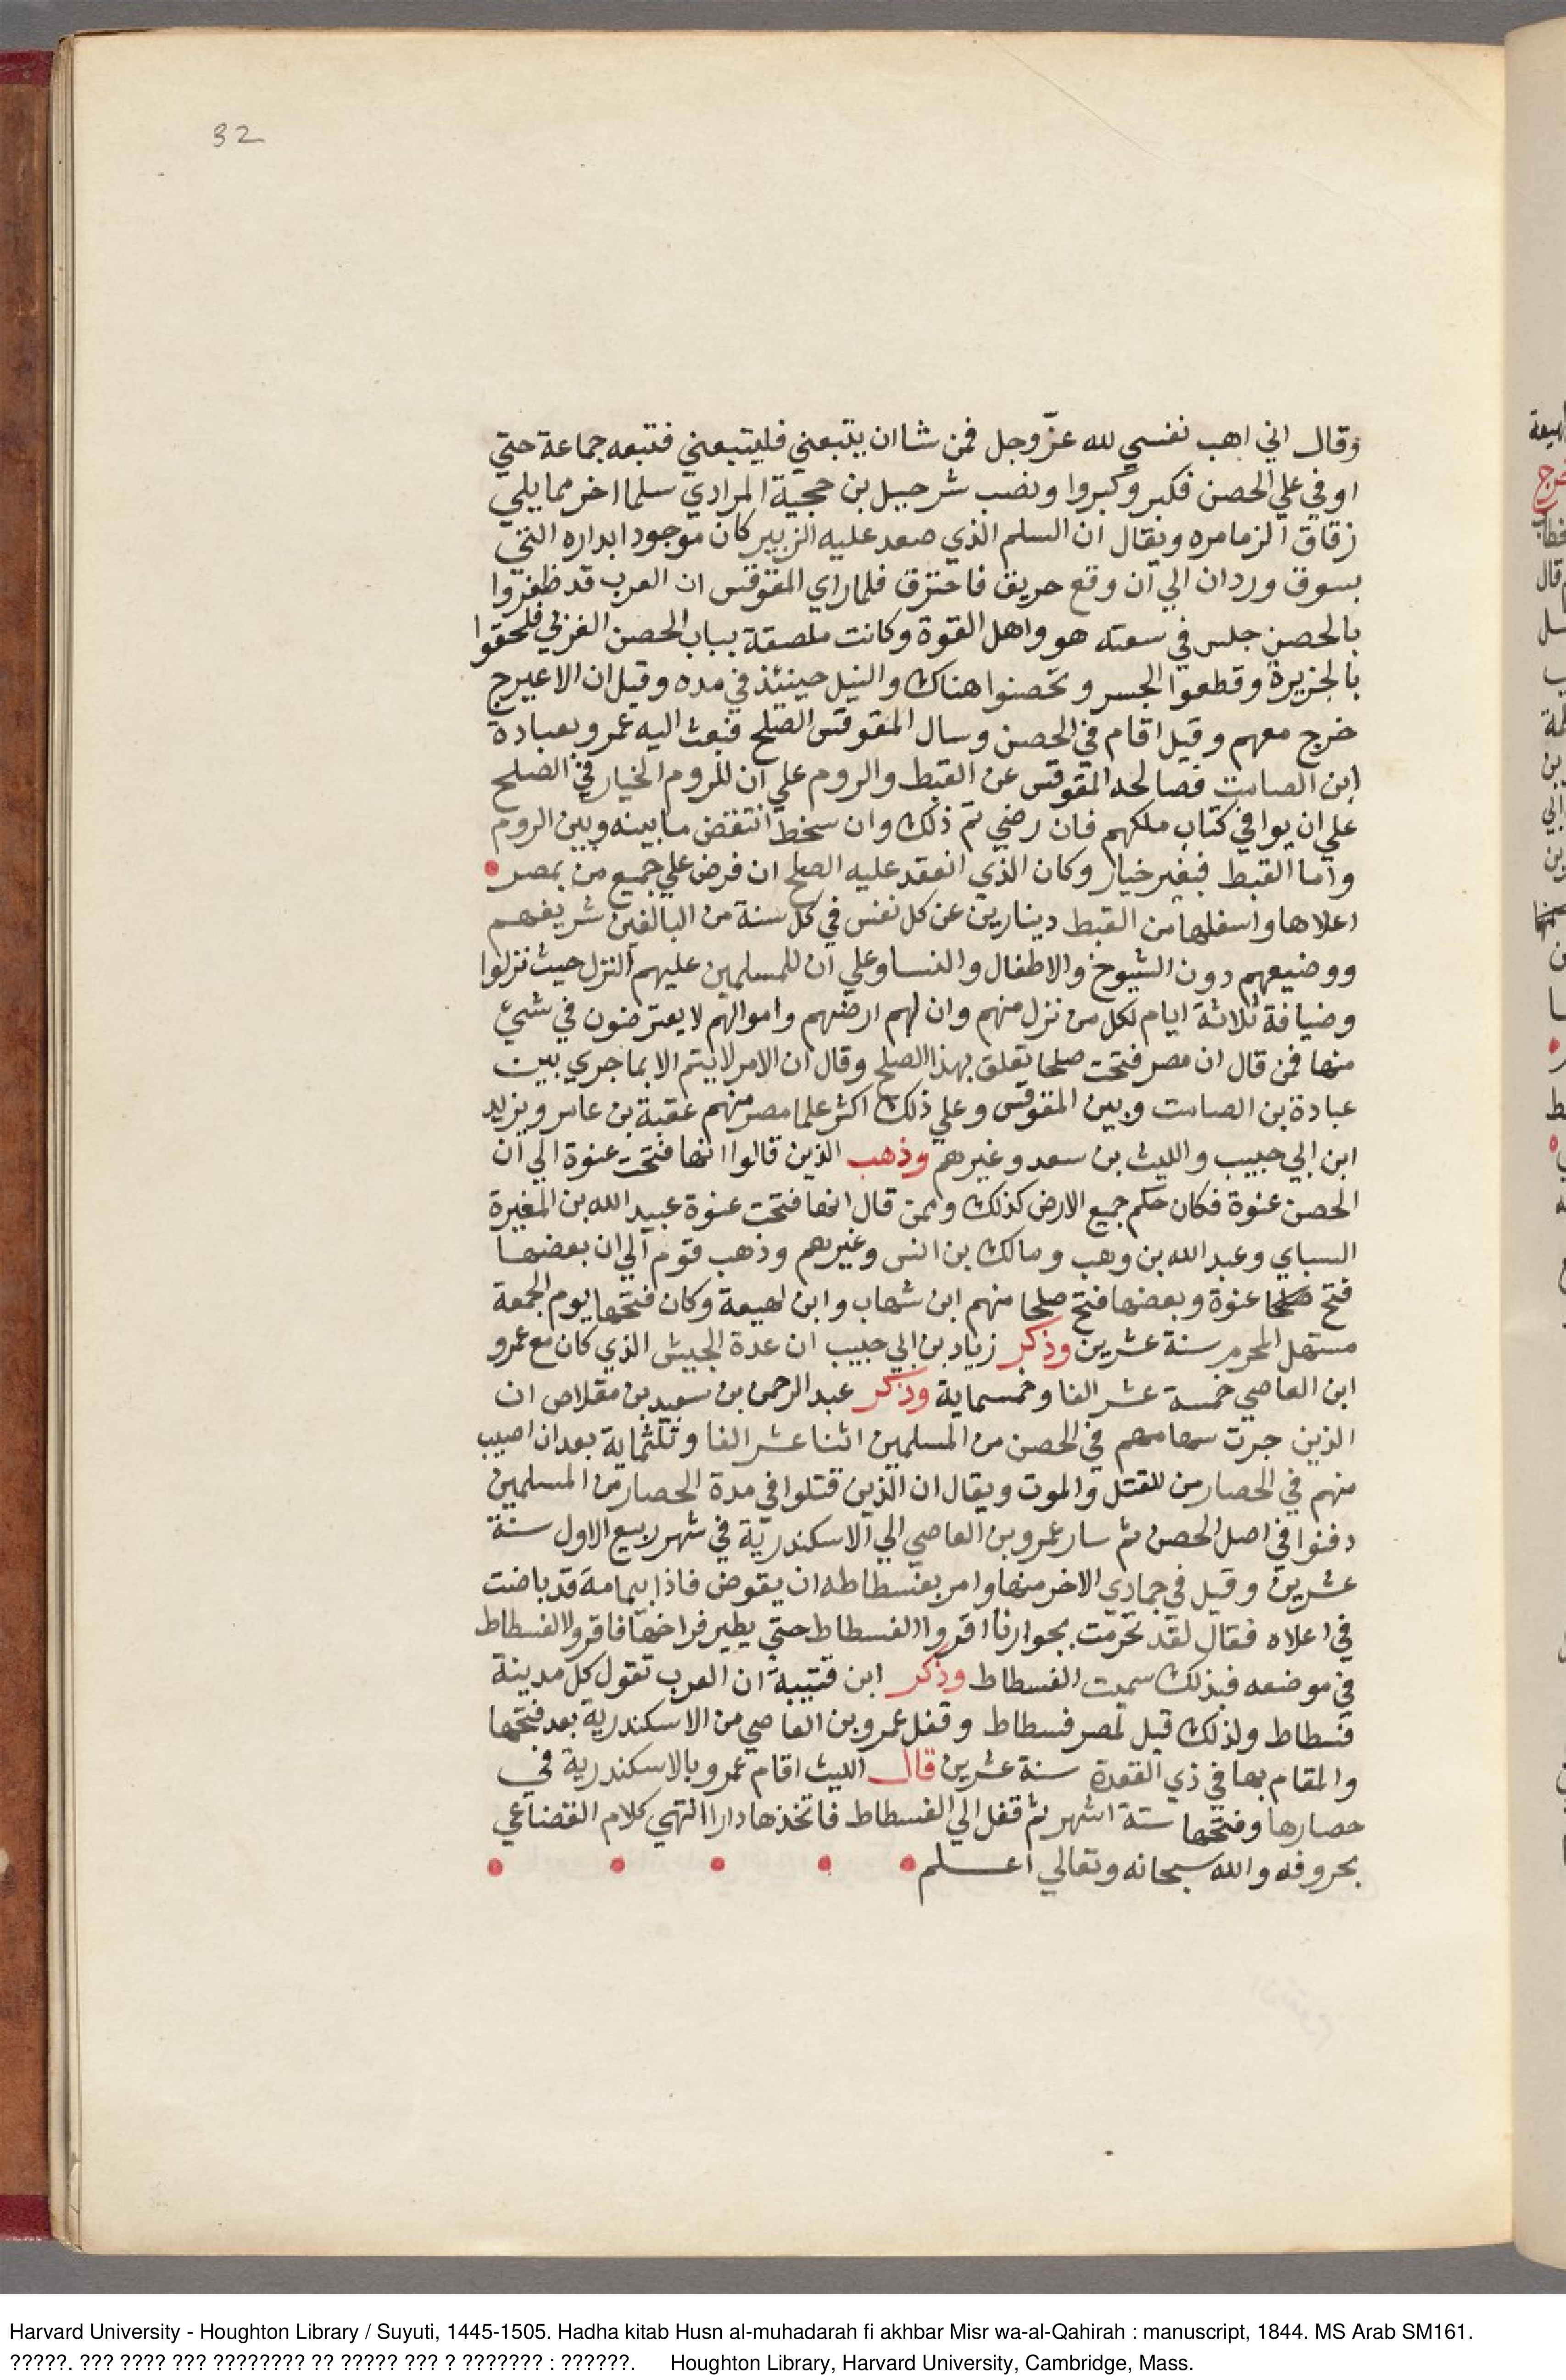 32
وقال اني اهب نفسي لله عزّ وجل فمن شا ان يتبعني فليتبعني فتبعه جماعة حتي
اوفي علي الحصن فكبر وكبروا ونصب شرحبيل بن حجية المرادي سلما اخر مما يلي
زقاق الزمامره ويقال ان السلم الذي صعد عليه الزبير كان موجودا بداره التي
بسوق وردان الي ان وقع حريق فاحترق فلما راي المقوقس ان العرب قد ظفروا
بالحصن جلس في سعته هو واهل القوة وكانت ملصقة بباب الحصن الغربي فلحقوا
بالجزيرة وقطعوا الجسر وتحصنوا هناك والنيل حينئذ في مده وقيل ان الاعيرج
خرج معهم وقيل اقام في الحصن وسال المقوقس الصلح فبعث اليه عمرو بعبادة
ابن الصامت فصالحه المقوقس عن القبط والروم علي ان للروم الخيار في الصلح
علي ان يوافي كتاب ملكهم فان رضي تم ذلك وان سخط انتقض ما بينه وبين الروم
واما القبط فبغير خيار وكان الذي انعقد عليه الصلح ان فرض علي جميع من بمصر
اعلاها واسفلها من القبط دينارين عن كل نفس في كل سنة من البالغين شريفهم
ووضيعهم دون الشيوخ والاطفال والنسا وعلي ان للمسلمين عليهم النزل حيث نزلوا
وضيافة ثلاثة ايام لكل من نزل منهم وان لهم ارضهم واموالهم لا يعترضون في شيئ
منها فمن قال ان مصر فتحت صلحا تعلق بهذا الصلح وقال ان الامر لا يتم الا بما جري بين
عبادة بن الصامت وبين المقوقس وعلي ذلك اكثر علما مصر منهم عقبة بن عامر ويزيد
ابن ابي حبيب والليث بن سعد وغيرهم وذهب الذين قالوا انها فتحت عنوة الي ان
الحصن عنوة فكان حكم جميع الارض كذلك وممن قال انها فتحت عنوة عبيد الله بن المغيرة
السباي وعبد الله بن وهب ومالك بن انس وغيرهم وذهب قوم الي ان بعضها
فتح عنوة وبعضها فتح صلحا منهم ابن شهاب وابن لهيعة وكان فتحها يوم الجمعة
مستهل المحرم سنة عشرين وذكر زياد بن ابي حبيب ان عدة الجيش الذي كان مع عمرو
ابن العاصي خمسة عشر الفا وخمسماية وذكر عبد الرحمن بن سعيد بن مقلاص ان
الذين جرت سهامهم في الحصن من المسلمين اثنا عشر الفا وثلثماية بعد ان اصيب
منهم في الحصار من للقتل والموت ويقال ان الذين قتلوا في مدة الحصار من المسلمين
دفنوا في اصل الحصن ثم سار عمرو بن العاصي الي الاسكندرية في شهر ربيع الاول سنة
عشرين وقيل في جمادي الاخر منها وامر بفسطاطه ان يقوض فاذا بيمامة قد باضت
في اعلاه فقال لقد تحرمت بجوارنا اقروا الفسطاط حتي يطير فراخها فاقروا الفسطاط
في موضعه فبذلك سميت الفسطاط وذكر ابن قتيبة ان العرب تقول كل مدينة
فسطاط ولذلك قيل لمصر فسطاط وقفل عمرو بن العاصي من الاسكندرية بعد فتحها
والمقام بها في ذي القعدة سنة عشرين قال الليث اقام عمرو بالاسكندرية في
حصارها وفتحها ستة اشهر ثم قفل الي الفسطاط فاتخذها دارا انتهي كلام القضاعي
بحروفه والله سبحانه وتعالي اعلم
Harvard University - Houghton Library / Suyuti, 1445-1505. Hadha kitab Husn al-muhadarah fi akhbar Misr wa-al-Qahirah : manuscript, 1844. MS Arab SM161.
?????. ??? ???? ??? ???????? ?? ????? ??? ? ??????? : ??????. Houghton Library, Harvard University, Cambridge, Mass.